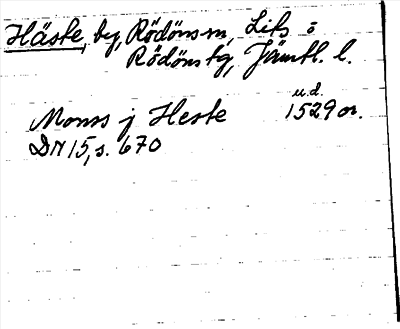 Häste, by, Rödöns sn, Lits o
Rödöns tg, Jämtl. l.
u.d.
Monss j Heste 1529 or.
DN 15, s. 670